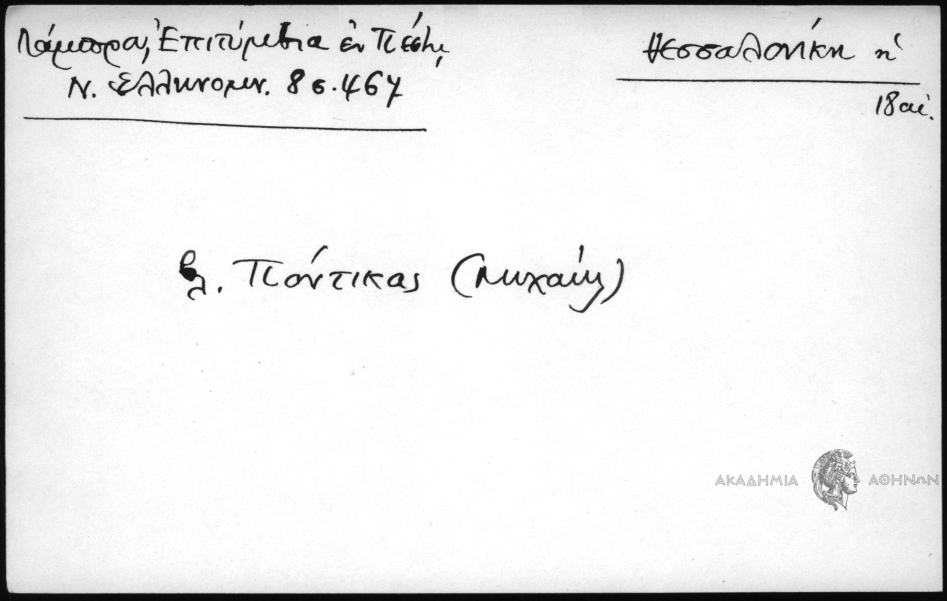 Λάμπρου, Ἐπιτύμβια ἐν Πέστῃ,
Ν. Ἑλληνομν. 8 σ. 467
Θεσσαλονίκη ἡ
18 αἰ.
βλ. Πόντικας (Μιχαήλ)
ΑΚΑΔΗΜΙΑ ΑΘΗΝΩΝ